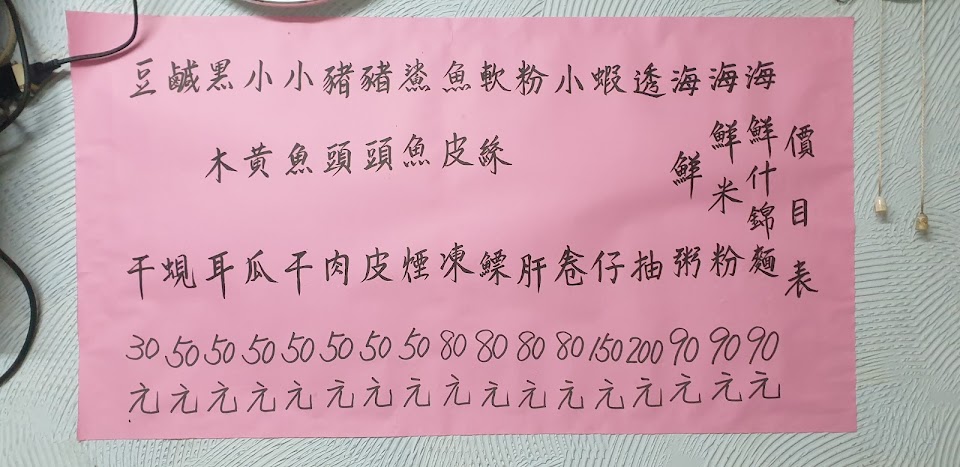 價目表
海鮮什錦麵90元
海鮮米粉90元
海鮮粥90元
透抽200元
蝦仔150元
小卷80元
粉肝80元
軟絲鰾80元
魚皮凍80元
鯊魚煙50元
豬頭皮50元
豬頭肉50元
小魚干50元
小黃瓜50元
黑木耳50元
鹹蜆50元
豆干30元